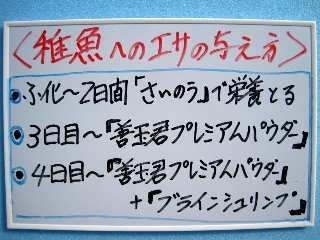 〈稚魚へのエサの与え方〉
ふ化〜2日間「さいのう」で栄養とる
3日目〜『善玉君プレミアムパウダー』
4日目〜『善玉君プレミアムパウダー』
+『ブラインシュリンプ』